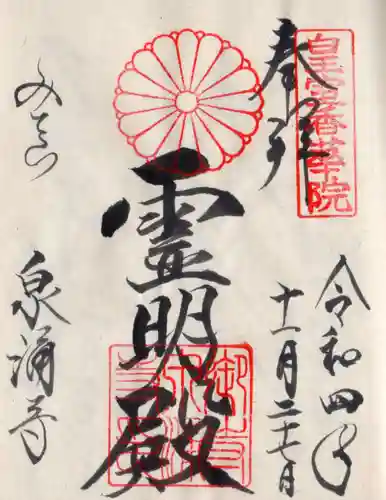 奉拝
皇室香華院
令和四年
十一月二十七日
霊明殿
みてら
泉涌寺